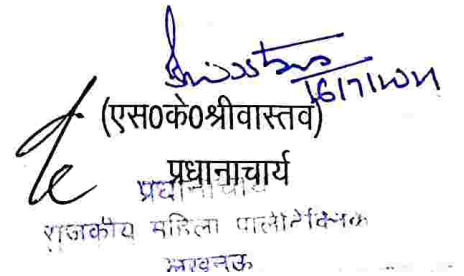 (एस0के0श्रीवास्तव)
प्रधानाचार्य
प्रधानाचार्य
राजकीय महिला पालीटेक्निक
लखनऊ